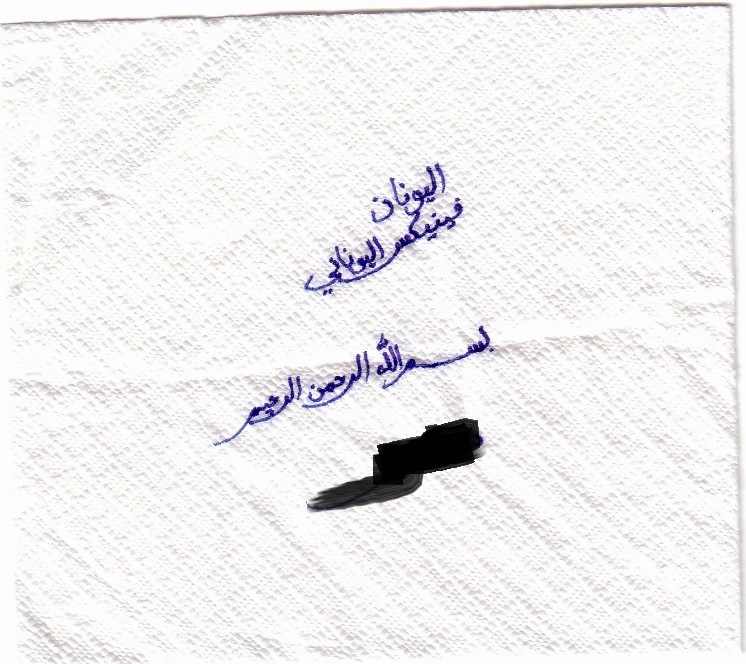 اليونان
فينيكس اليوناني
بسم الله الرحمن الرحيم